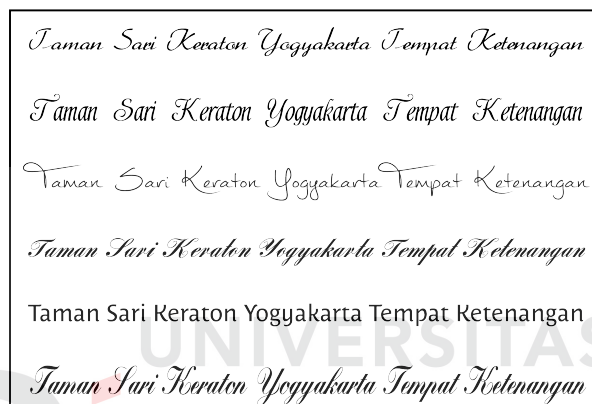 Taman Sari Keraton Yogyakarta Tempat Ketenangan
Taman Sari Keraton Yogyakarta Tempat Ketenangan
Taman Sari Keraton Yogyakarta Tempat Ketenangan
Taman Sari Keraton Yogyakarta Tempat Ketenangan
Taman Sari Keraton Yogyakarta Tempat Ketenangan
UNIVERSITAS
Taman Sari Keraton Yogyakarta Tempat Ketenangan